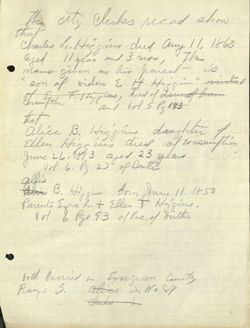 The City Clerks record show
that
Charles L. Higgins died Aug 11, 1860
aged 11 years and 3 mos, The
name given as his parent is
"son of widow E H Higgin"
and Vol 5 Pg 183
that
Alice B. Higgins daughter of
Ellen Higgins died of consumption
June 26 1893 aged 23 years
Vol. 6. Pg 23 of Deaths
B. Higgins born June 11. 1850
Parents Ezra & Ellen T Higgins.
Vol 6 Pg 93 of Rec. of Births
both burried in Evergreen Cemetery
Range S. in No 89